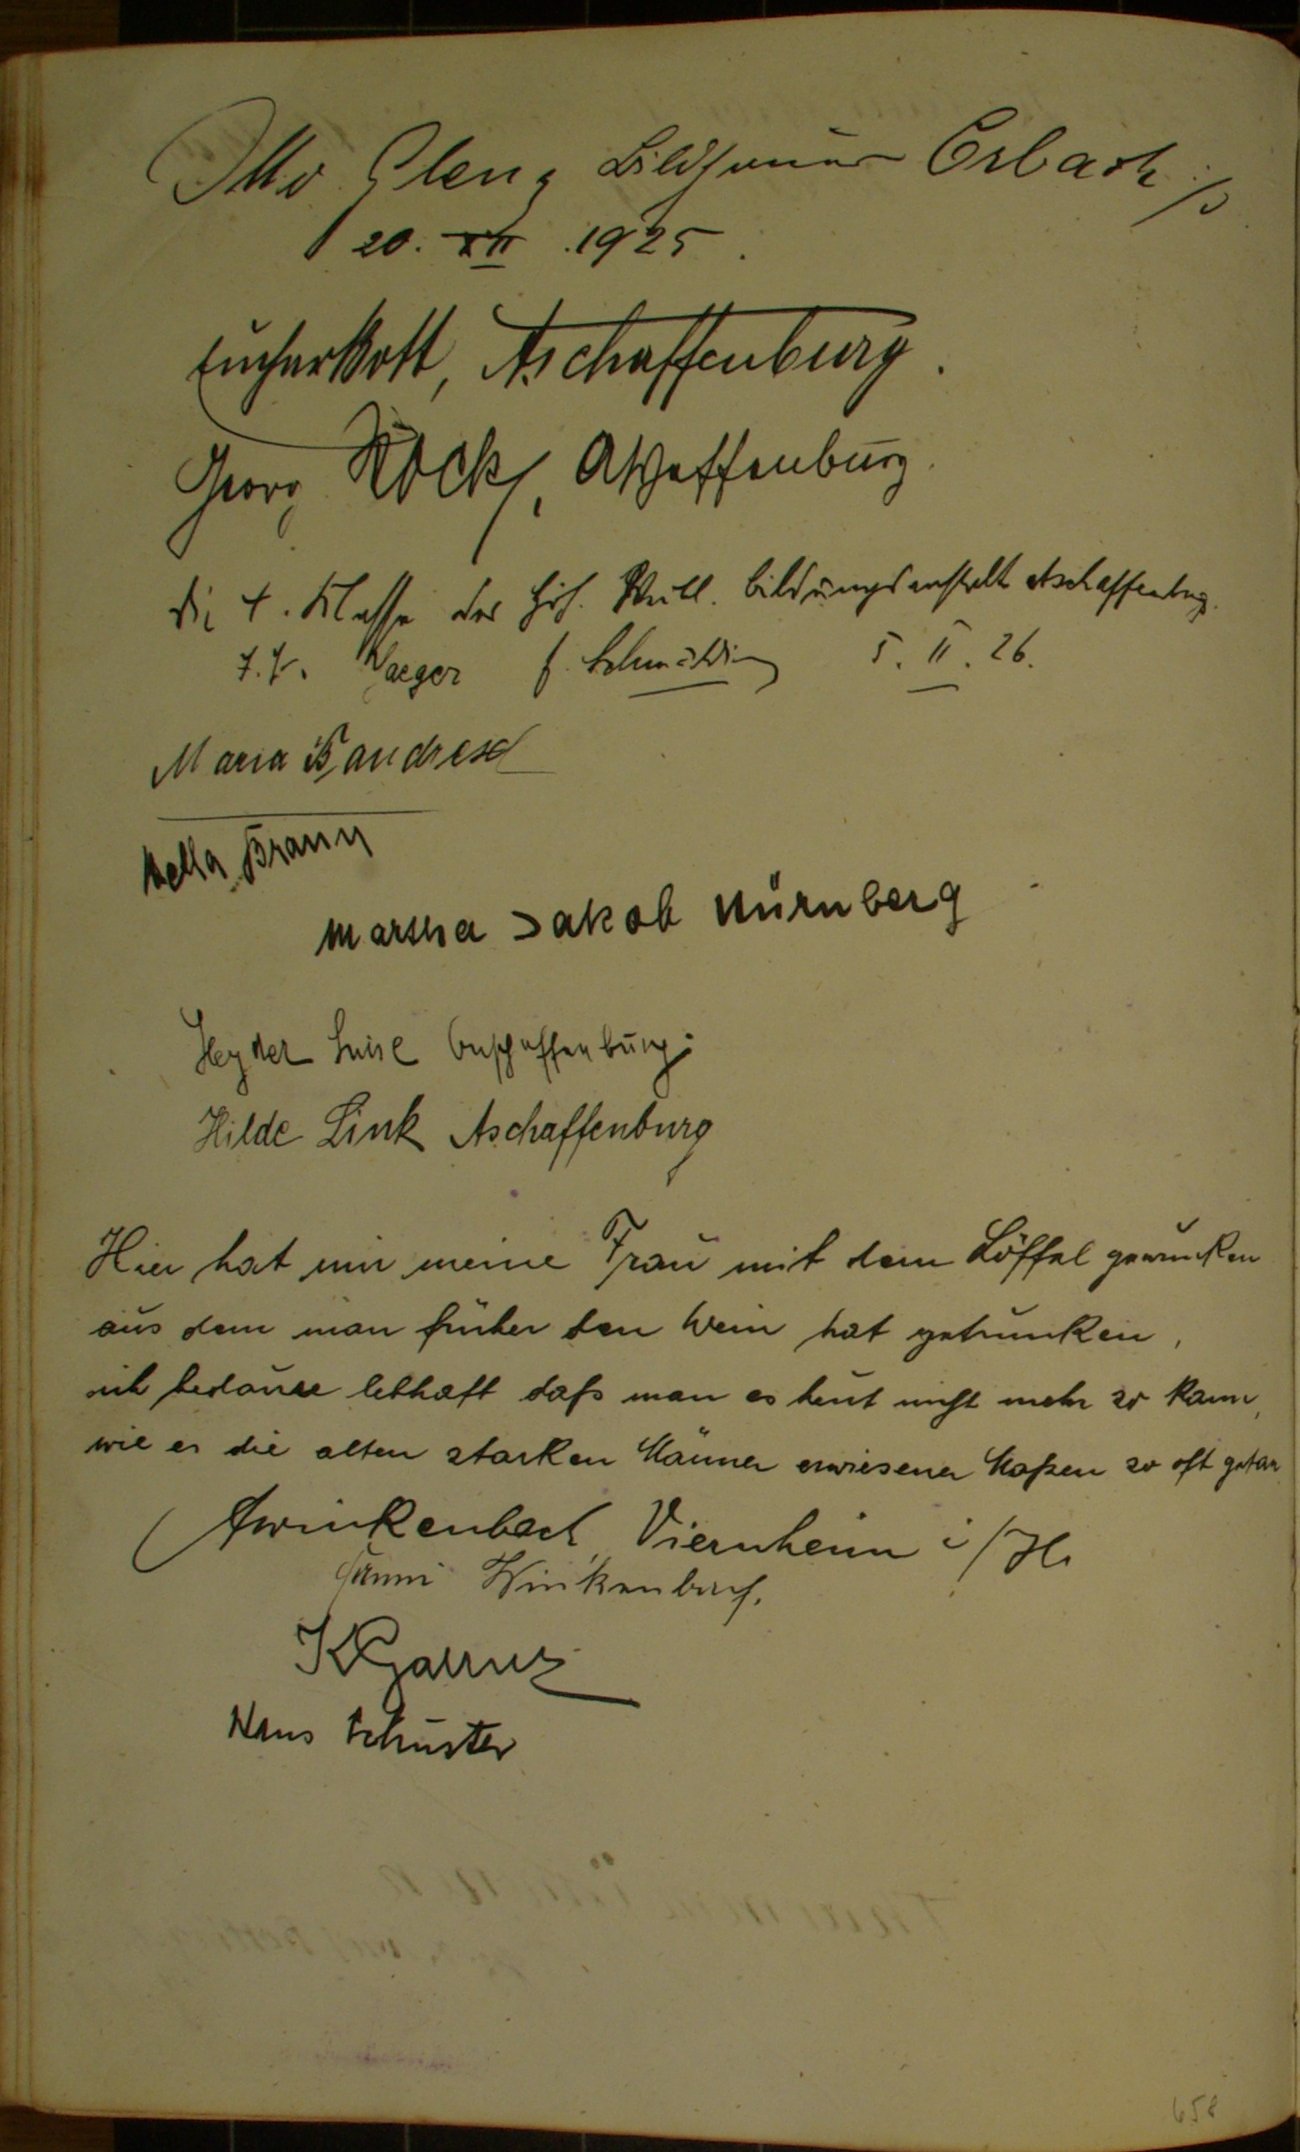 Otto Glenz Bildhauer Erbach
20. XII. 1925.
Aschaffenburg.
Georg Köck, Aschaffenburg.
die 4. Klasse der höh. Weibl. bildungsanstalt Aschaffenbg.
Jaeger 5. II. 26.
Maria
Hella Braun
Martha Jakob Nürnberg
Heyder Luise Aschaffenburg.
Hilde Link Aschaffenburg
Hier hat mir meine Frau mit dem Löffel gewunken
aus dem man früher den Wein hat getrunken,
ich bedaure lebhaft daß man es heut nicht mehr so kann,
wie es die alten starken Männer erwiesener Maßen so oft getan
Winkenbach Viernheim i/H.
Winkenbach.
Hans Schuster
658